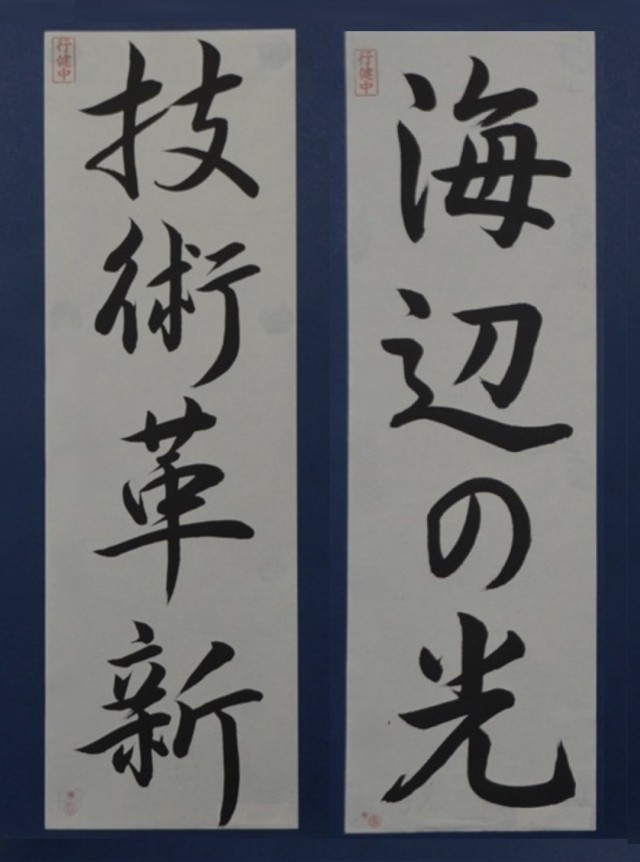 海辺の光
技術革新
行健中
行健中